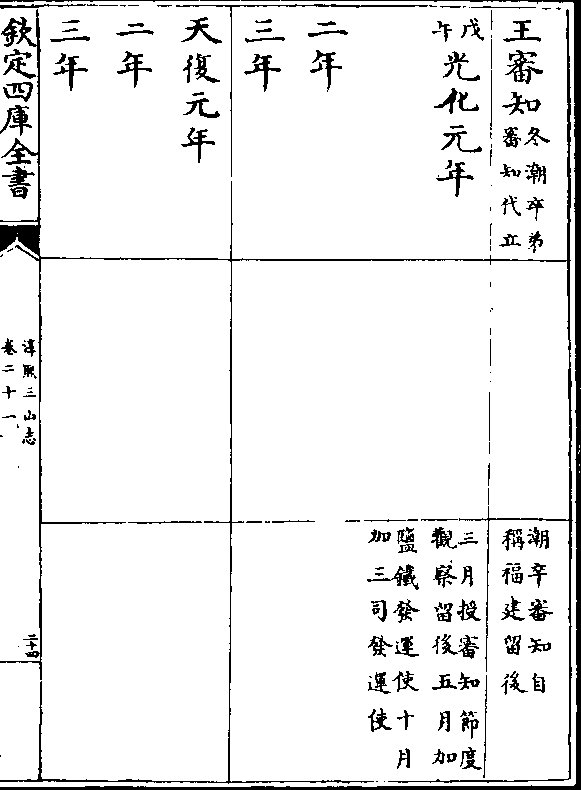 王審知
冬潮卒弟
審知代立
潮卒審知自
稱福建留後
戊午
光化元年
三月授審知節度
觀察留後五月加
鹽鐵發運使十月
加三司發運使
二年
三年
天復元年
二年
三年
欽定四庫全書
淳熙三山志
卷二十一
二十四